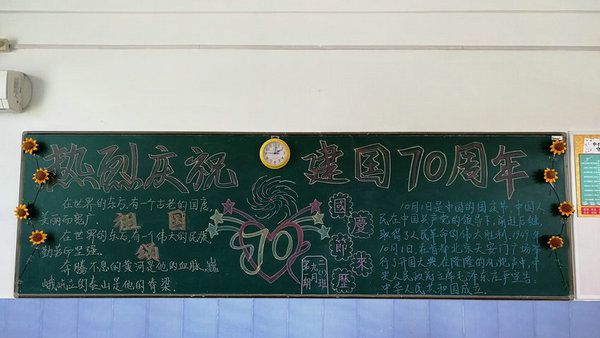 热烈庆祝 建国70周年
在世界的东方,有一个古老的国度,
美丽而宽广。
祖国颂
在世界的东方,有一个伟大的民族,
勤劳而坚强。
奔腾不息的黄河是他的血脉,巍
峨屹立的泰山是他的脊梁。
70
國慶節來歷
第九期
10月1日是中国的国庆节,中国人
民在中国共产党的领导下,前赴后继,
取得了人民革命的伟大胜利。1949年
10月1日,在首都北京天安门广场举
行了开国大典,在隆隆的礼炮声中,中
央人民政府主席毛泽东庄严宣告:
中华人民共和国成立